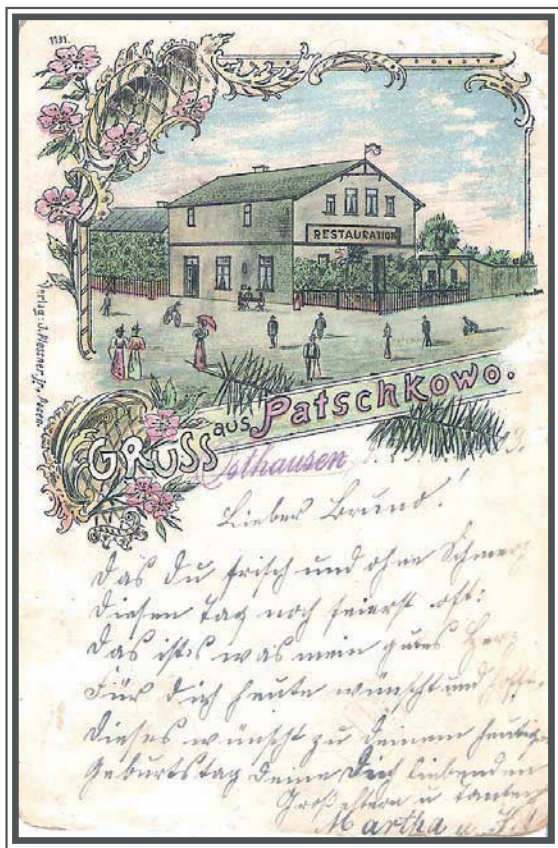 1131.
RESTAURATION
Verlag: J. Plessner jr., Posen.
GRUSS aus Patschkowo.
Osthausen, d.
Lieber Bruno!
Das du frisch und ohne Schmerz
Diesen Tag noch feierst oft:
Das ist's was mein gutes Herz
Für dich heute wünscht und hofft.
Dieses wünscht zu deinem heutigen
Geburtstag deine Dich liebenden
Großeltern u Tanten
Martha u.